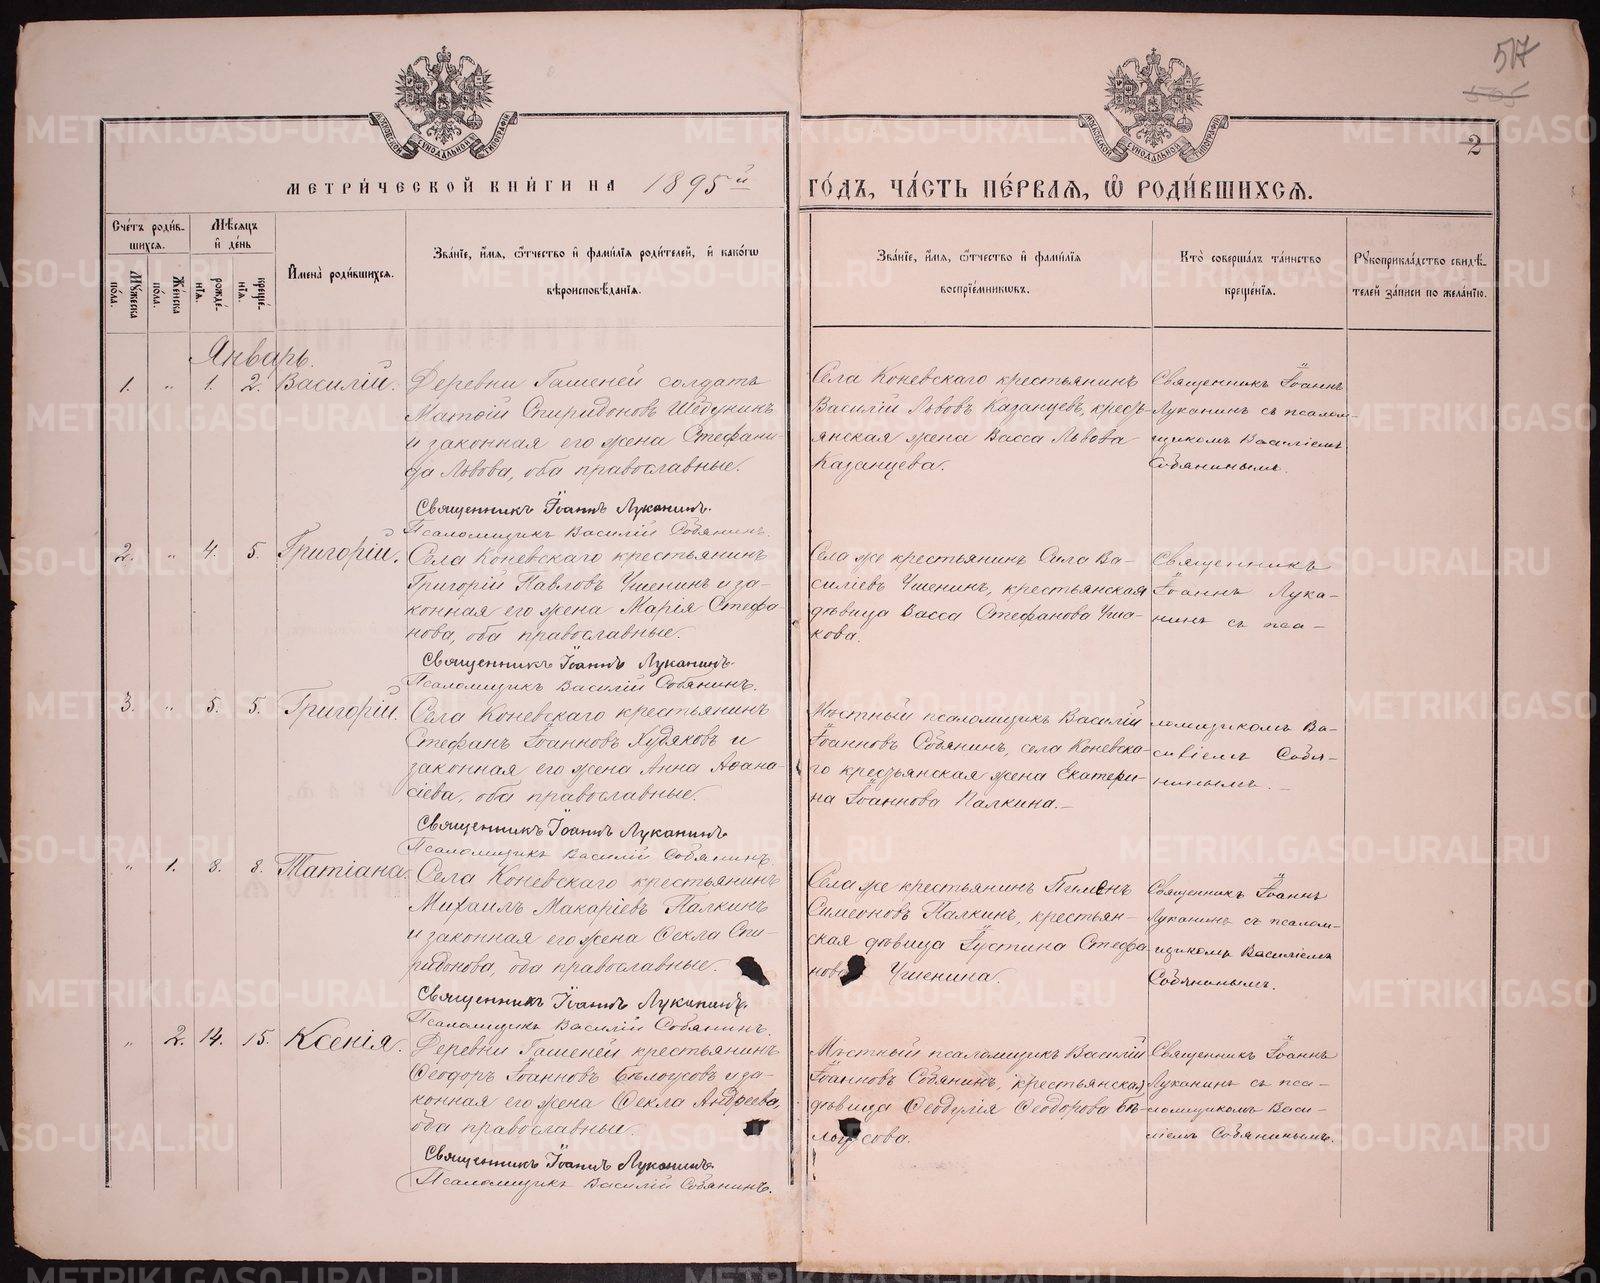 517
505
2
МОСКОВСКОЙ СѴНОДАЛЬНОЙ ТИПОГРАФІИ
МОСКОВСКОЙ СѴНОДАЛЬНОЙ ТИПОГРАФІИ
МЕТРИ́ЧЕСКОЙ КНИ́ГИ НА 1895й ГО́ДЪ, ЧА́СТЬ ПЕ́РВАЯ, Ѡ РОДИ́ВШИХСЯ.
Сче́тъ роди́в-
шихся.
Мѣ́сяцъ
и де́нь
Му́жеска
по́ла.
Же́нска
по́ла.
рожде́-
нія.
креще́-
нія.
Имена̀ роди́вшихся.
Зва́ніе, и́мя, ѻ҆́тчество и фами́лія роди́телей, и како́гѡ
вѣроисповѣ́данія.
Зва́ніе, и́мя, ѻ҆́тчество и фами́лія
воспріе́мниковъ.
Кто̀ соверша́лъ та́инство
креще́нія.
Рꙋкоприкла́дство свидѣ́-
телей за́писи по жела́нію.
Январь.
1. „ 1. 2. Василій.
Деревни Гашеней солдатъ
Матѳій Спиридоновъ Шедунинъ
и законная его жена Стефани-
да Львова, оба православные.
Священникъ Іоаннъ Луканинъ.
Псаломщикъ Василій Собянинъ.
Села Коневскаго крестьянинъ
Василій Львовъ Казанцевъ, кресть-
янская жена Васса Львова
Казанцева.
Священникъ Іоаннъ
Луканинъ съ псалом-
щикомъ Василіемъ
Собянинымъ.
2. „ 4. 5. Григорій.
Села Коневскаго крестьянинъ
Григорій Павловъ Ушенинъ и за-
конная его жена Марія Стефа-
нова, оба православные.
Священникъ Іоаннъ Луканинъ.
Псаломщикъ Василій Собянинъ.
Села же крестьянинъ Сила Ва-
силіевъ Ушенинъ, крестьянская
дѣвица Васса Стефанова Уша-
кова.
Священникъ
Іоаннъ Лука-
нинъ съ пса-
3. „ 5. 5. Григорій.
Села Коневскаго крестьянинъ
Стефанъ Іоанновъ Худяковъ и
законная его жена Анна Аѳана-
сіева, оба православные.
Священникъ Іоаннъ Луканинъ
Псаломщикъ Василій Собянинъ.
Мѣстный псаломщикъ Василій
Іоанновъ Собянинъ, села Коневска-
го крестьянская жена Екатери-
на Іоаннова Палкина.
ломщикомъ Ва-
силіемъ Собя-
нинымъ.
„ 1. 8. 8. Татіана
Села Коневскаго крестьянинъ
Михаилъ Макаріевъ Палкинъ
и законная его жена Ѳекла Спи-
ридонова, оба православные.
Священникъ Іоаннъ Луканинъ.
Псаломщикъ Василій Собянинъ.
Села же крестьянинъ Пименъ
Симеоновъ Палкинъ, крестьян-
ская дѣвица Іустина Стефа
нова Ушенина.
Священникъ Іоаннъ
Луканинъ съ псалом-
щикомъ Василіемъ
Собянинымъ.
„ 2. 14. 15. Ксенія.
Деревни Гашеней крестьянинъ
Ѳеодоръ Іоанновъ Бѣлоусовъ и за-
конная его жена Ѳекла Андреева,
оба православные.
Священникъ Іоаннъ Луканинъ
Псаломщикъ Василій Собянинъ.
Мѣстный псаломщикъ Василій
Іоанновъ Собянинъ, крестьянская
дѣвица Ѳеодулія Ѳеодорова Бѣ-
лоусова.
Священникъ Іоаннъ
Луканинъ съ пса-
ломщикомъ Васи-
ліемъ Собянинымъ.
METRIKI.GASO-URAL.RU